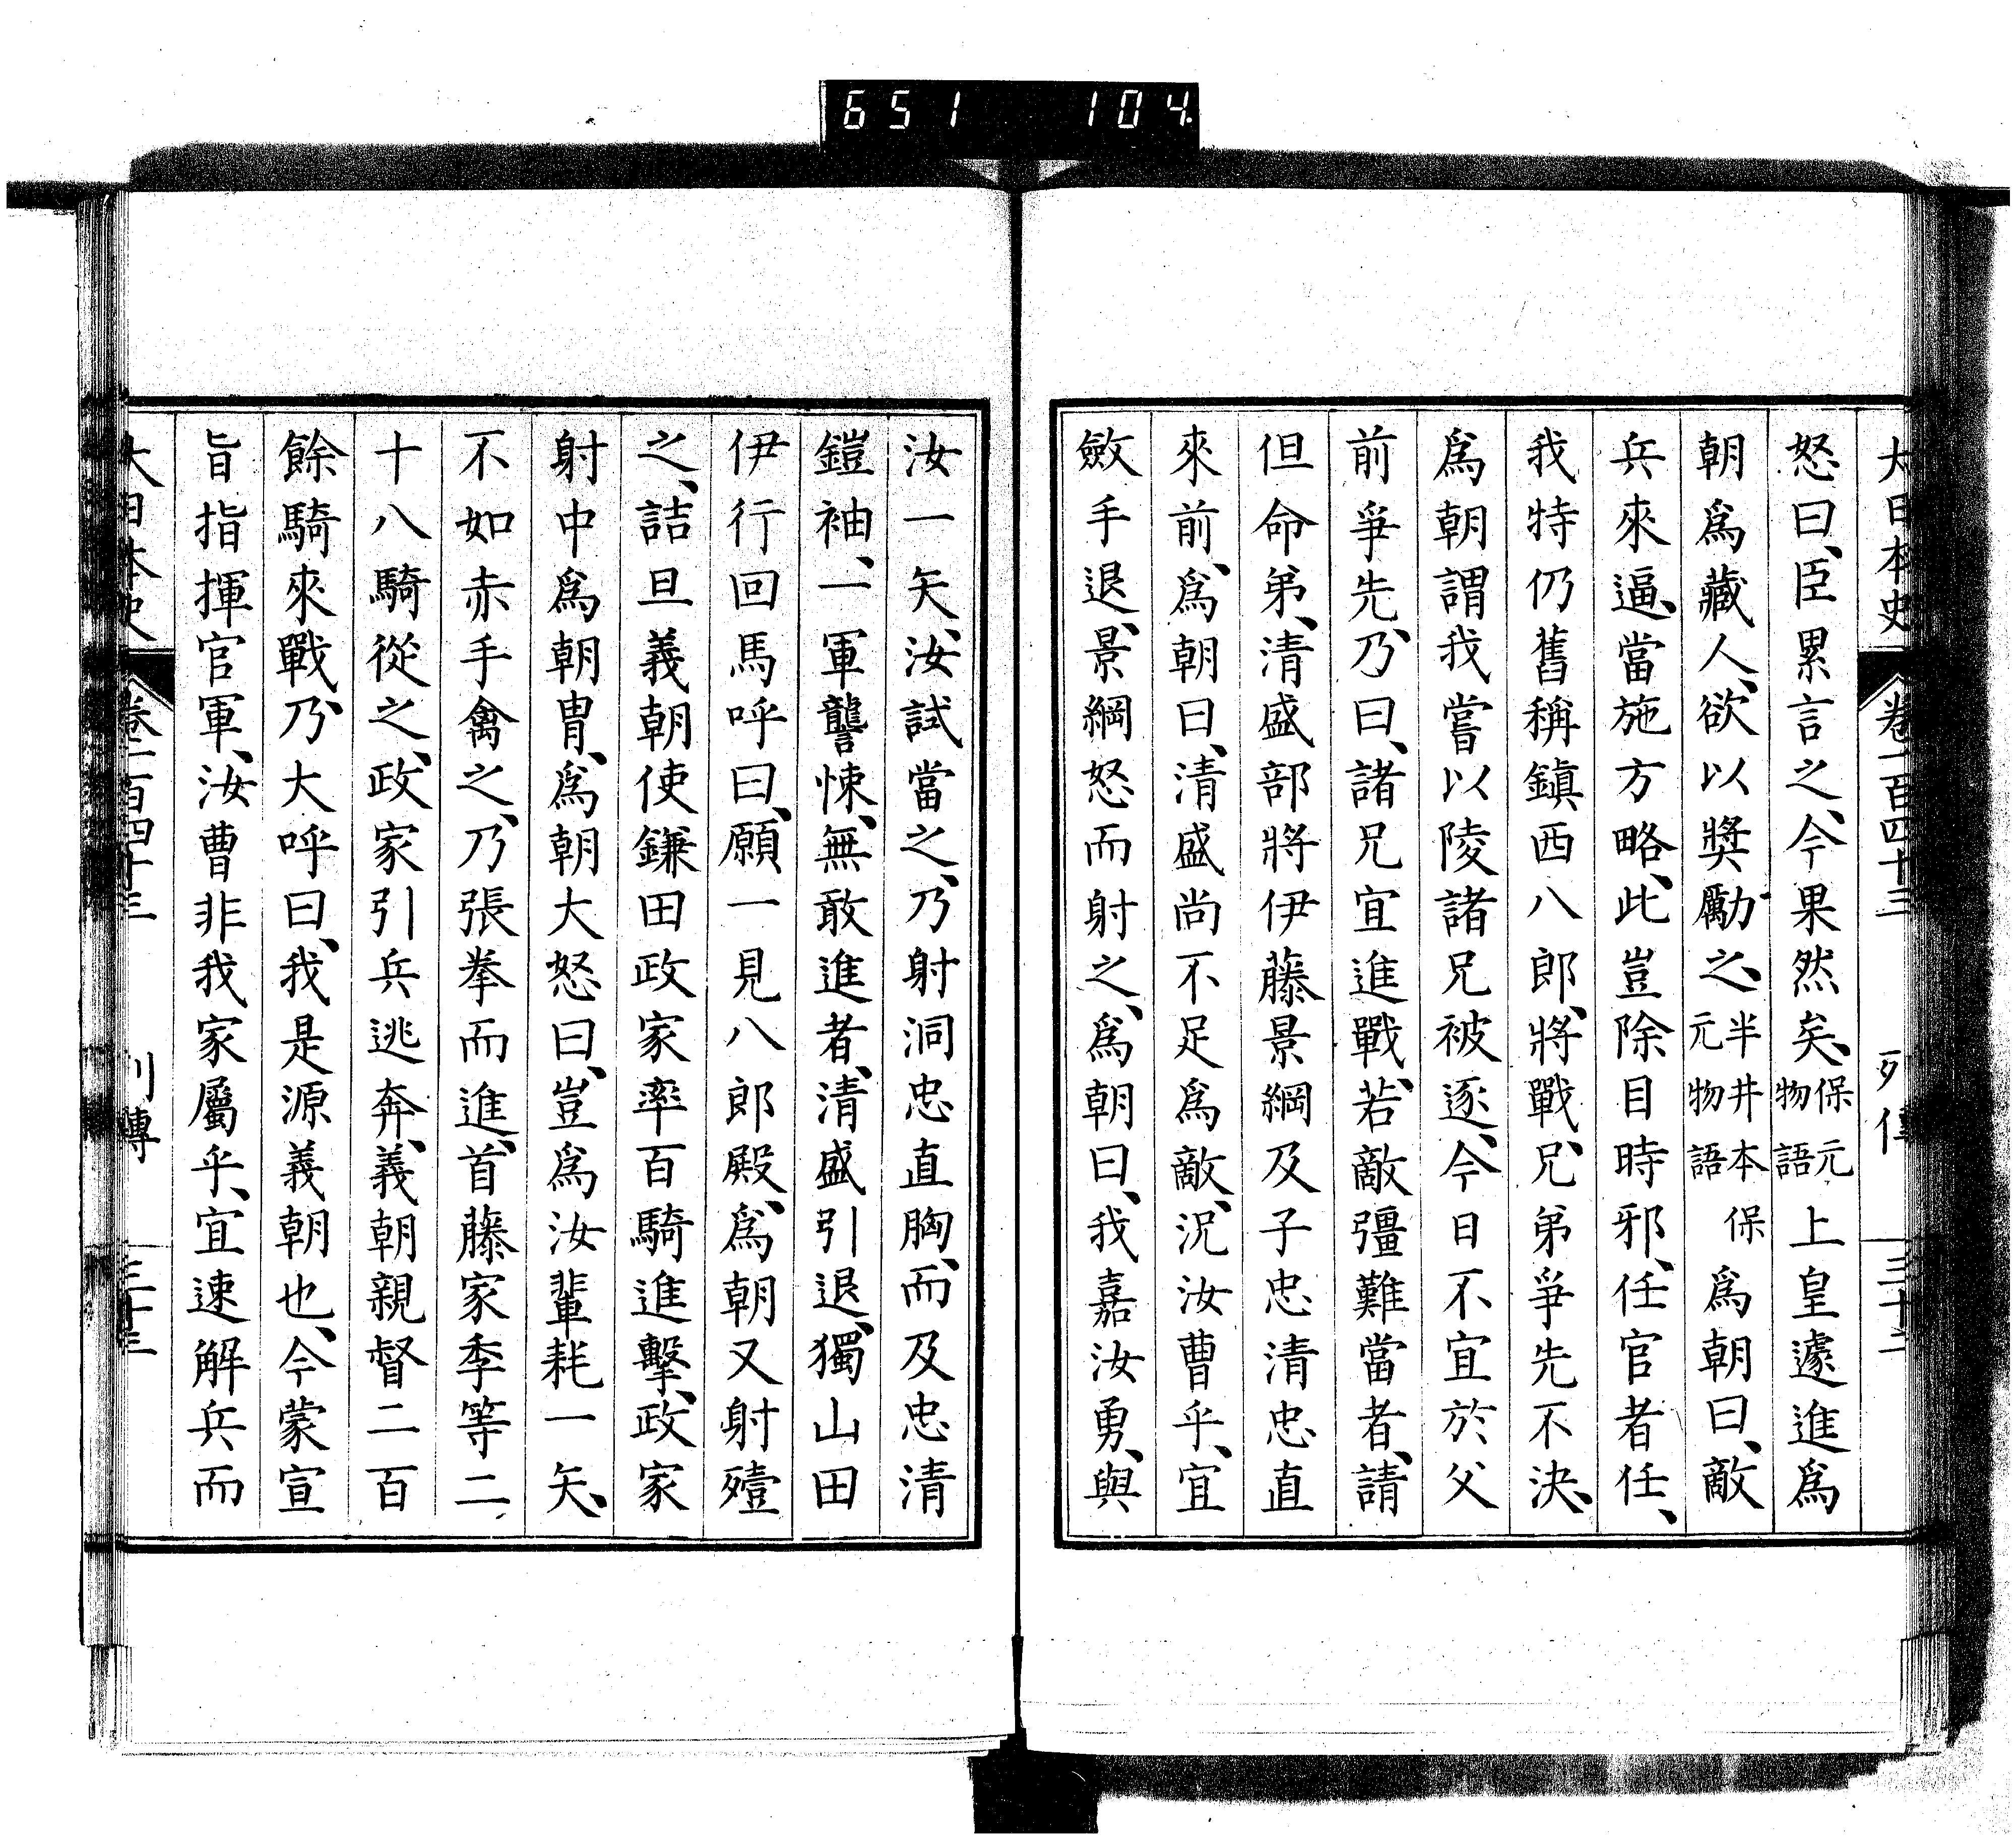 651 104.
大日本史 卷一百四十三 列傳 三十二
怒曰、臣累言之、今果然矣、保元物語上皇遽進爲
朝爲藏人、欲以獎勵之、半井本保元物語爲朝曰、敵
兵來逼、當施方略、此豈除目時邪、任官者任、
我特仍舊稱鎭西八郎、將戰、兄弟爭先不決、
爲朝謂我嘗以陵諸兄被逐、今日不宜於父
前爭先、乃曰、諸兄宜進戰、若敵彊難當者、請
但命弟、清盛部將伊藤景綱及子忠清忠直
來前、爲朝曰、清盛尚不足爲敵、況汝曹乎、宜
斂手退、景綱怒而射之、爲朝曰、我嘉汝勇、與
汝一矢、汝試當之、乃射洞忠直胸、而及忠清
鎧袖、一軍讋悚、無敢進者、清盛引退、獨山田
伊行回馬呼曰、願一見八郎殿、爲朝又射殪
之、詰旦義朝使鎌田政家率百騎進擊、政家
射中爲朝冑、爲朝大怒曰、豈爲汝輩耗一矢、
不如赤手禽之、乃張拳而進、首藤家季等二
十八騎從之、政家引兵逃奔、義朝親督二百
餘騎來戰、乃大呼曰、我是源義朝也、今蒙宣
旨指揮官軍、汝曹非我家屬乎、宜速解兵而
大日本史 卷一百四十三 列傳 三十三